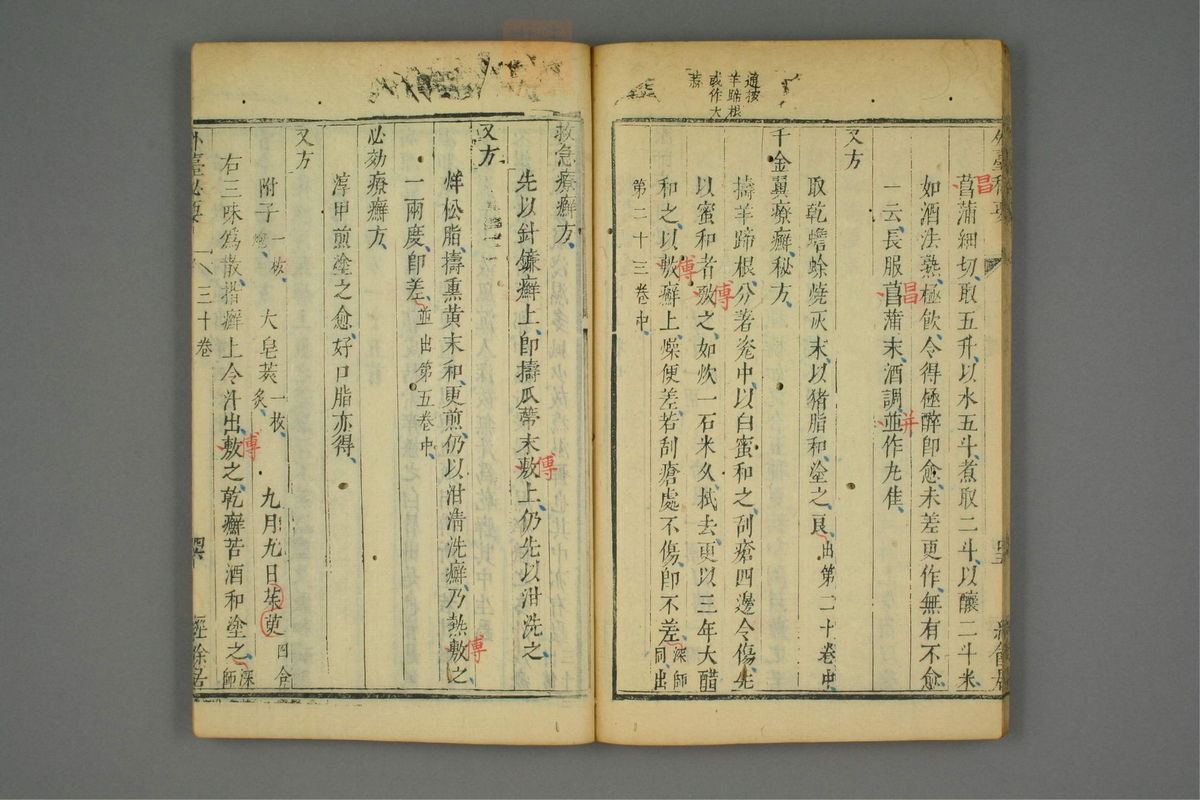 通按
羊蹄根
或作大
蒜
菖蒲細切取五升以水五斗煮取二斗以釀二斗米
昌
如酒法熟極飲令得極醉即愈未差更作無有不愈
一云長服菖蒲末酒調並作丸佳
昌
并
又方
取乾蟾蜍燒灰末以猪脂和塗之良出第二十卷中
千金翼療癬秘方
擣羊蹄根分著瓷中以白蜜和之刮瘡四邊令傷先
以蜜和者敷之如炊一石米久拭去更以三年大醋
傅
和之以敷癬上燥便差若刮瘡處不傷即不差深師同出
傅
第二十三卷中
救急療癬方
先以針鐮癬上即擣瓜蒂末敷上仍先以泔洗之
傅
又方
烊松脂擣熏黄末和更煎仍以泔清洗癬乃熱敷之
傅
一兩度即差並出第五卷中
必効療癬方
淳甲煎塗之愈好口脂亦得
又方
附子一枚炮 大皂莢一枚炙 九月九日茱萸四合
右三味為散揩癬上令汁出敷之乾癬苦酒和塗之深師
傅
外臺秘要 三十卷 經餘居